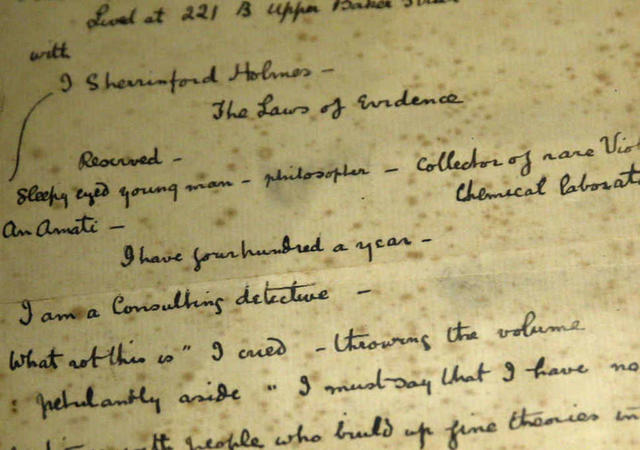 Lived at 221 B Upper Baker Street
with
I Sherrinford Holmes –
The Laws of Evidence
Reserved –
Sleepy eyed young man – philosopher – collector of rare
An Amati –
Chemical
I have four hundred a year –
I am a Consulting detective –
What rot this is" I cried – throwing the volume
: petulantly aside " I must say that I have no
with people who build up fine theories in